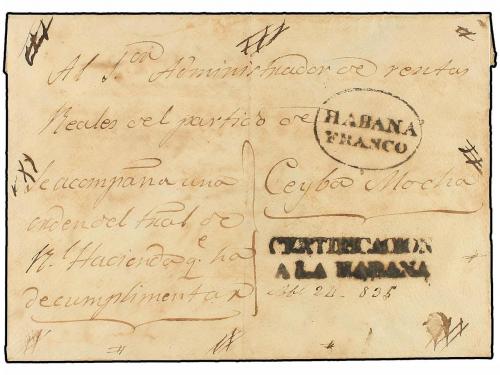 Al Sor Administrador de rentas
Reales del partido de
HABANA
FRANCO
Ceyba Mocha
Se acompaña una
orden del tral de
Rl. Hacienda qe ha
de cumplimentar
CERTIFICACION
A LA HABANA
24 - 835